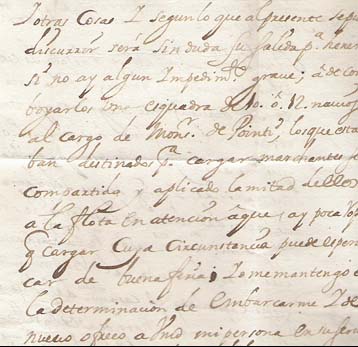 Yotras Cosas Y segun lo que al presente se pue
discurrir será sin duda su salida p.ª henero
si no ay algun Impedim.to grave; á de com
boyarlos una esquadra de 10. ó 12. navios
al cargo de Mons. de Pointi, los que esta
ban destinados p.ª cargar marchantes
compartido y aplicado la mitad de ellos
a la flota en atencion aque ay poca
q cargar Cuya Circunstancia puede espen
car de buena feria; Yo me mantengo e
la determinacion de embarcarme Y de
nuevo ofreco a Vmd mi persona en su